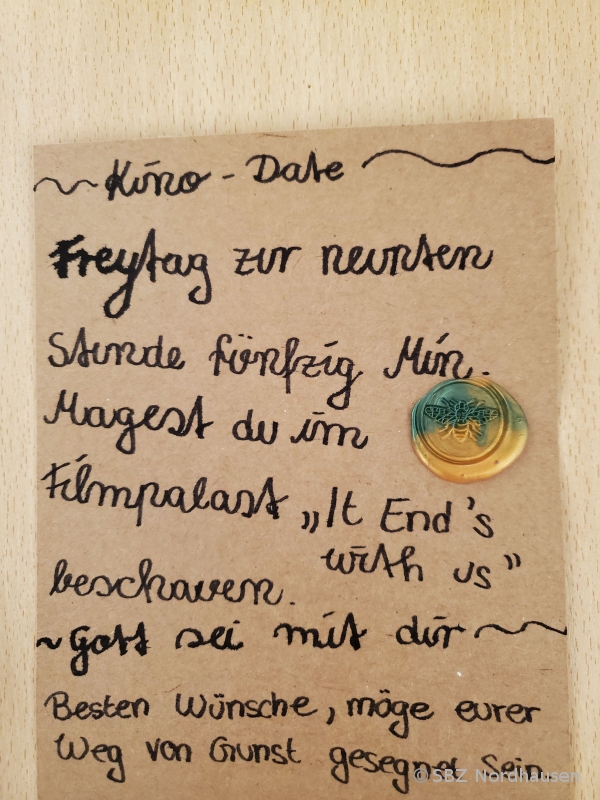 Kino - Date
Freytag zur neunten
Stunde fünfzig Min.
Magest du im
Filmpalast „It End's
with us"
beschauen.
~ Gott sei mit dir
Besten Wünsche, möge eurer
Weg von Gunst gesegnet Sein.
© SBZ Nordhausen